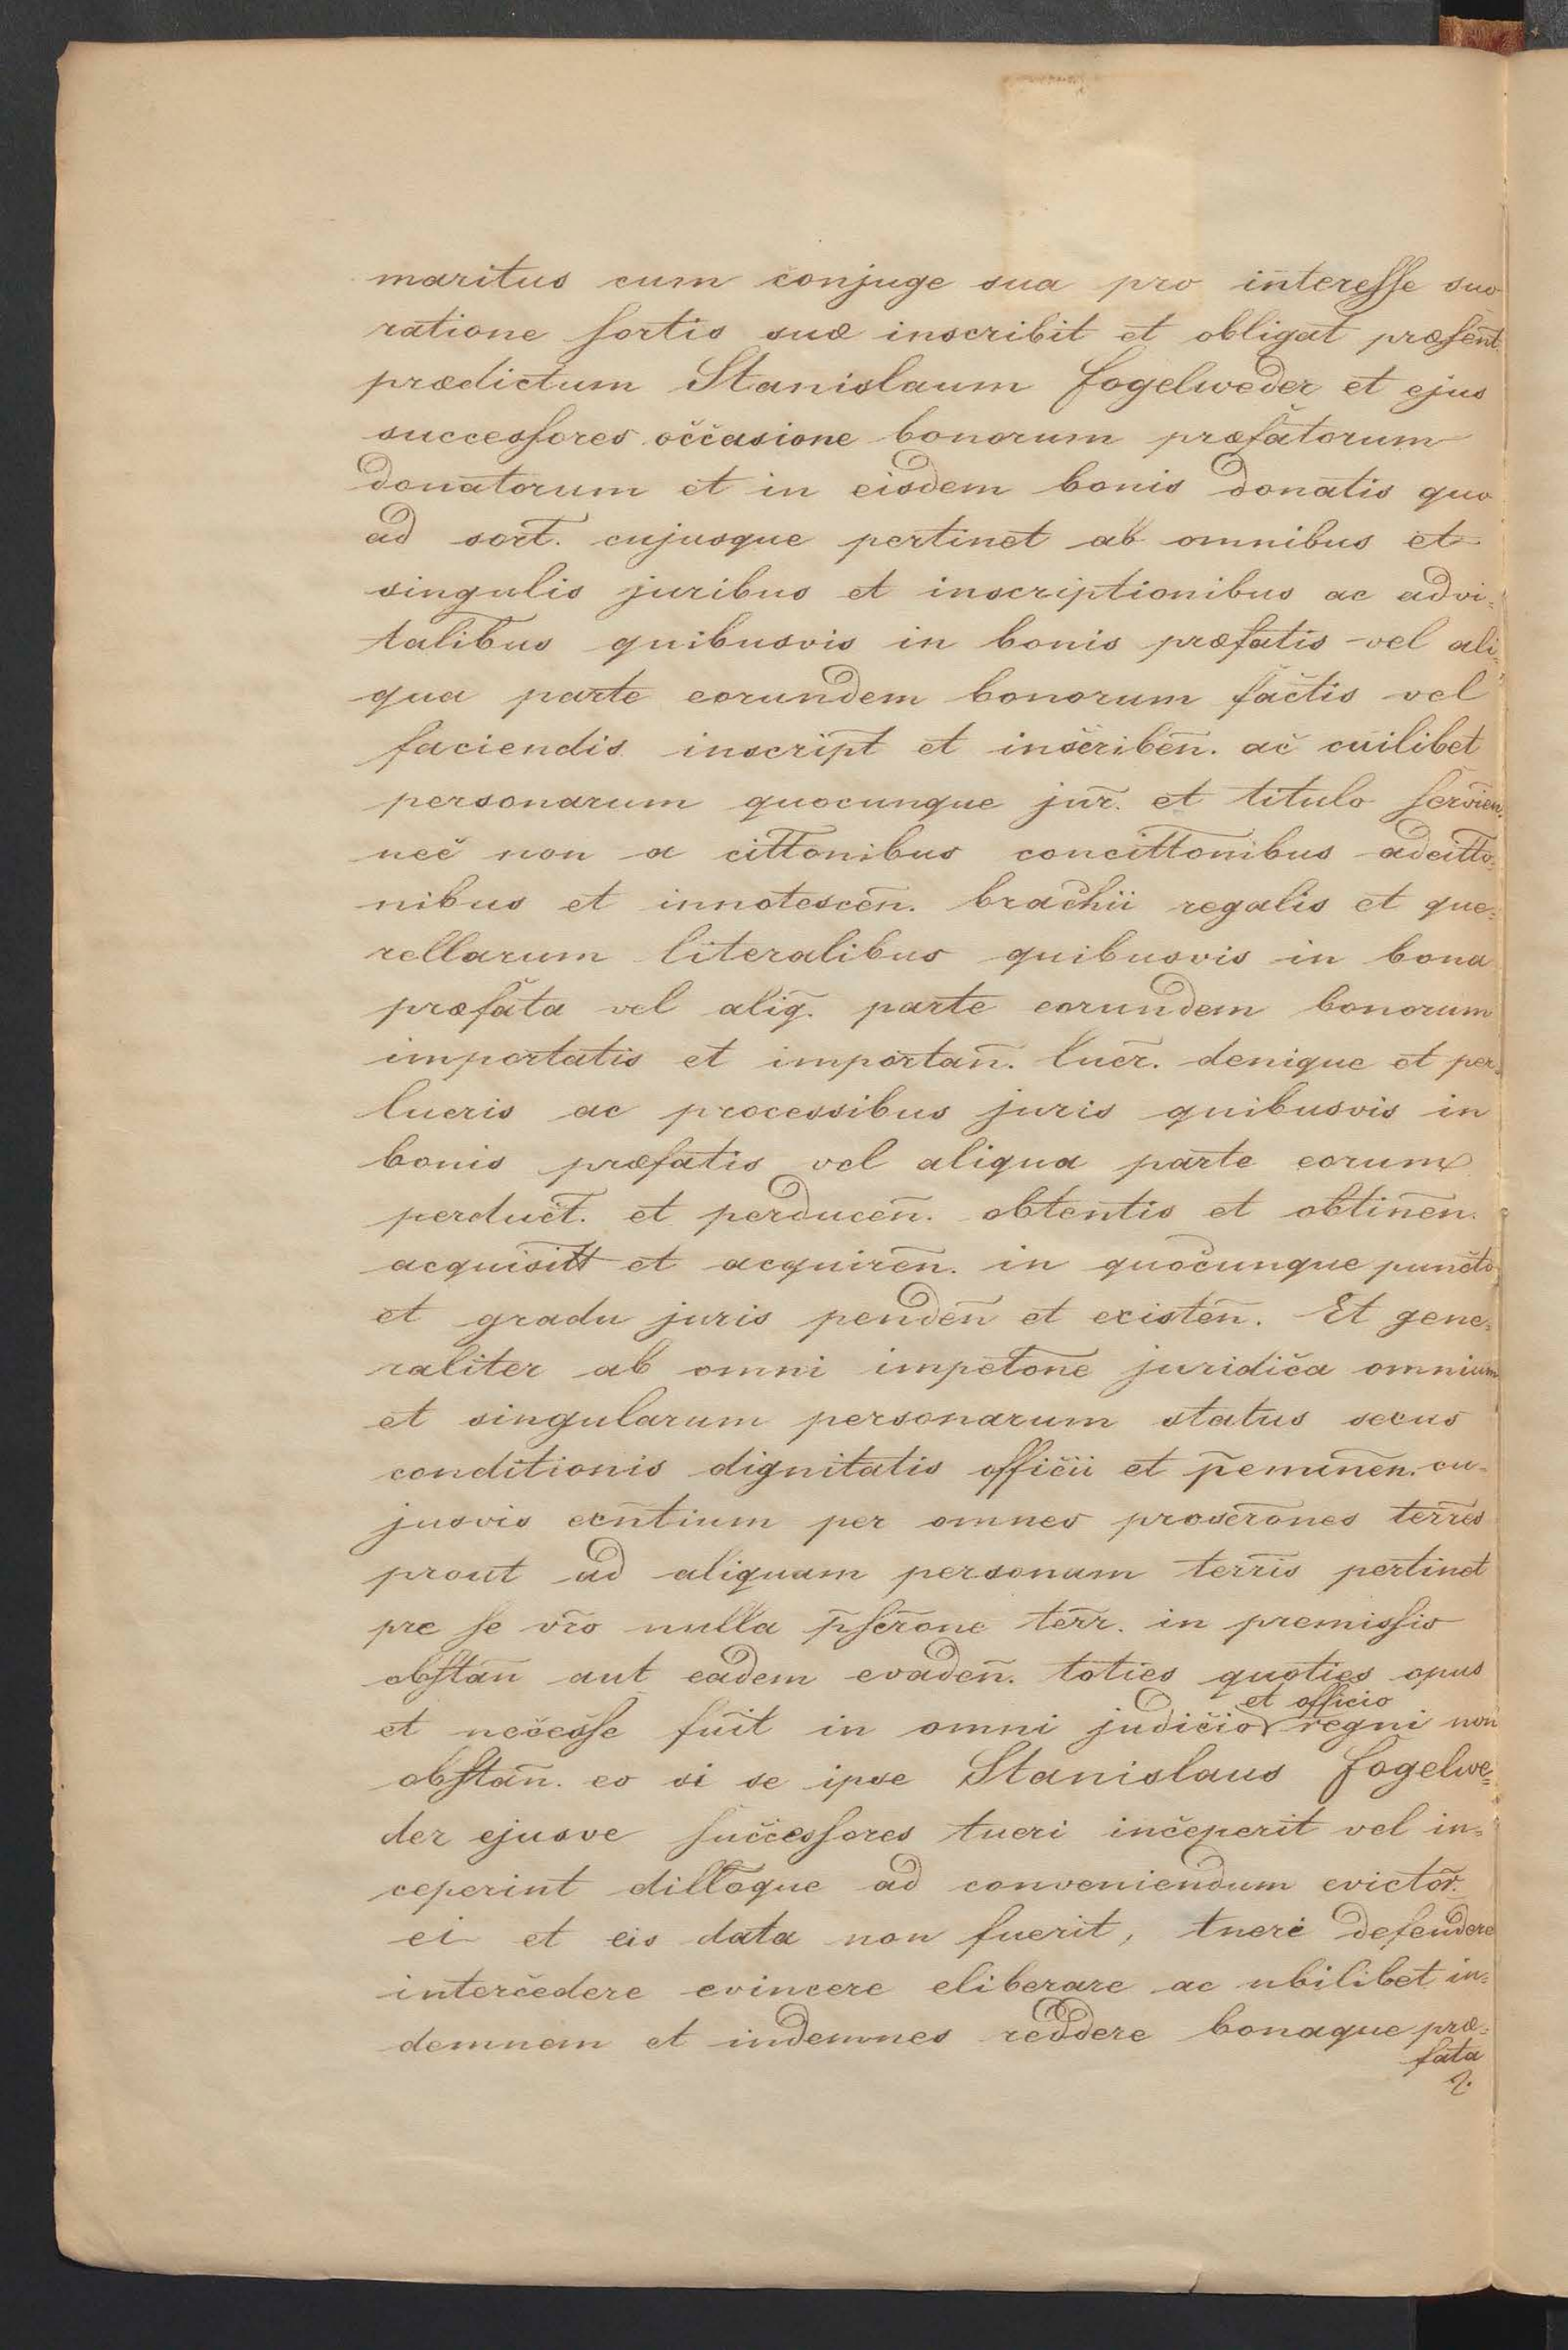 maritus cum conjuge sua pro interesse suo
ratione sortis suæ inscribit et obligat præsent.
prædictum Stanislaum Fogelweder et ejus
successores occasione bonorum præfatorum
donatorum et in eisdem bonis donatis quo
ad sort. cujusque pertinet ab omnibus et
singulis juribus et inscriptionibus ac advi=
talibus quibusvis in bonis præfatis vel ali=
qua parte eorundem bonorum factis vel
faciendis inscript et inscriben̄. ac cuilibet
personarum quocunque jur̄. et titulo servien.
nec non a citt̄onibus concitt̄onibus adcitt̄o=
nibus et innotescen̄. brachii regalis et que=
rellarum literalibus quibusvis in bona
præfata vel aliq̄. parte eorundem bonorum
importatis et importan̄. lucr̄. denique et per=
lucris ac processibus juris quibusvis in
bonis præfatis vel aliqua parte eorum
perduct̄. et perducen̄. obtentis et obtinen̄.
acquisitt et acquiren̄. in quocunque puncto
et gradu juris penden̄ et existen̄. Et gene=
raliter ab omni impet̄one juridica omnium
et singularum personarum status sexus
conditionis dignitatis officii et p̄eminen̄. cu=
jusvis exn̄tium per omnes proscr̄ones terr̄es
prout ad aliquam personam terr̄is pertinet
pre se vr̄o nulla p̄scr̄one terr̄. in premissis
obstan̄ aut eadem evaden̄. toties quoties opus
et necesse fuit in omni judicio et officio regni non
obstan̄. eo si se ipse Stanislaus Fogelwe=
der ejusve successores tueri inceperit vel in=
ceperint dill̄oque ad conveniendum evictor̄.
ei et eis data non fuerit, tueri defendere
intercedere evincere eliberare ac ubilibet in=
demnem et indemnes reddere bonaque præ=
fata